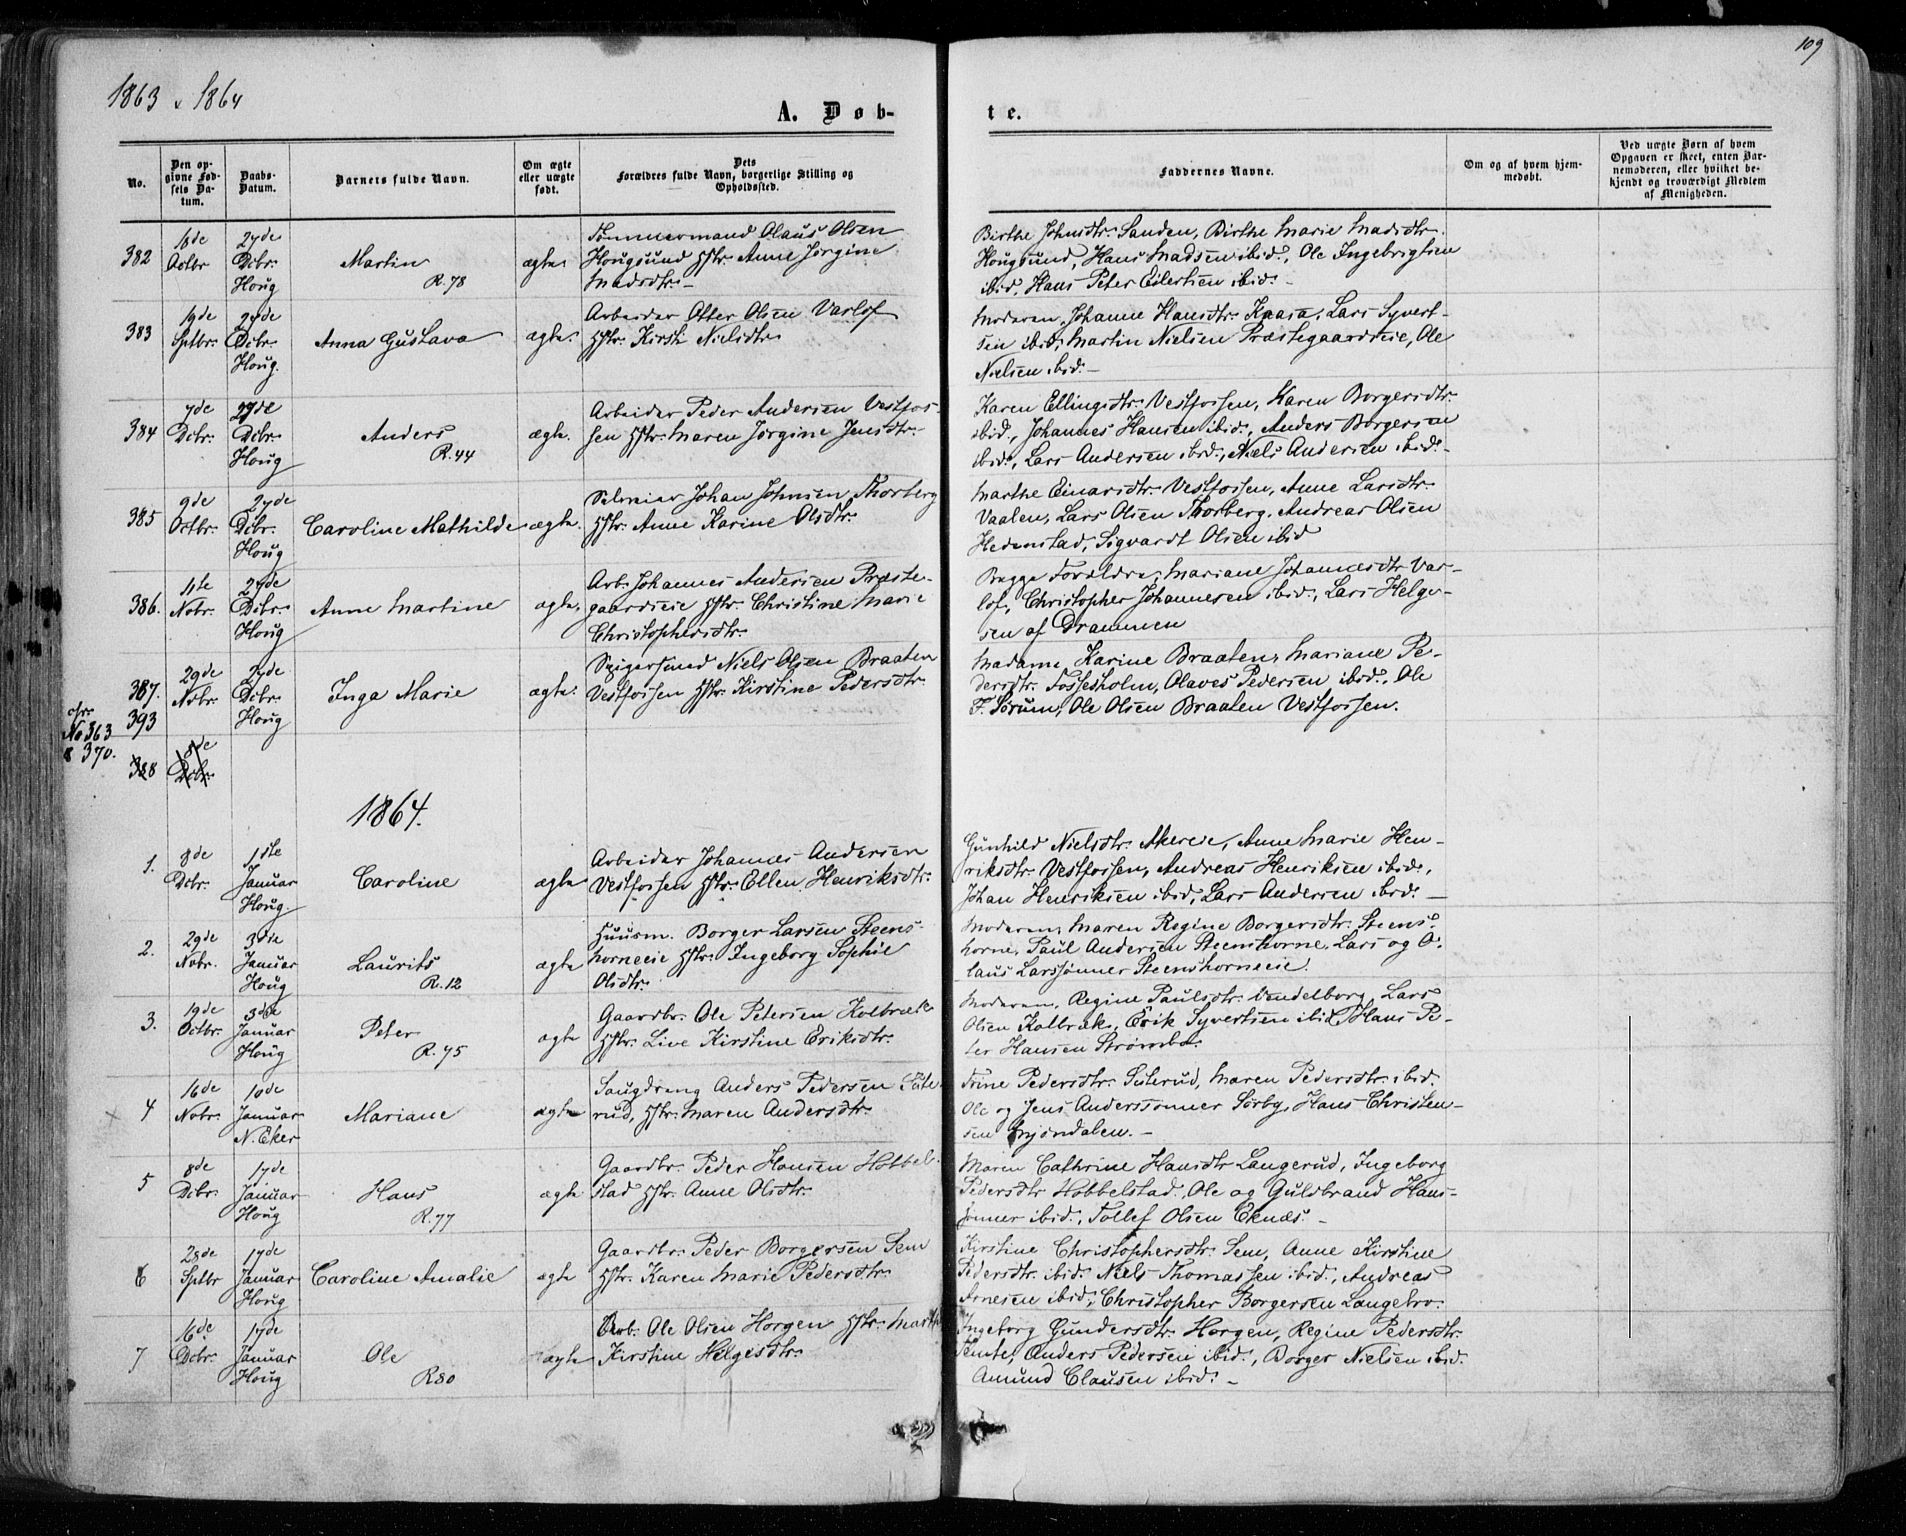 109
1863 & 1864
A. Døb-
te.
No.
Den op-
givne Fød-
sels Da-
tum.
Daabs-
Datum.
Barnets fulde Navn.
Om ægte
eller uægte
født.
Dets
Forældres fulde Navn, borgerlige Stilling og
Opholdssted.
Faddernes Navne.
Om og af hvem hjem-
medøbt.
Ved uægte Børn af hvem
Opgaven er skeet, enten Bar-
nemoderen, eller hvilket be-
kjendt og troværdigt Medlem
af Menigheden.
382
18de
Octbr
27de
Dcbr.
Houg
Martin
R. 78
ægte
Tømmermand Olaus Olsen
Hougsund Hstr. Anne Jørgine
Madsdtr.
Birthe Johnsdtr. Sanden, Birthe Marie Madsdtr.
Hougsund, Hans Madsen ibid., Ole Ingebrigtsen
ibid. Hans Peter Eilertsen ibid. -
383
19de
Sptbr.
27de
Dcbr.
Houg.
Anna Gustava
ægte.
Arbeider Otter Olsen Varlof
Hstr. Kirsti Nielsdtr.
Moderen, Johanne Hansdtr. Kaasa, Lars Syvert-
sen ibid, Martin Nielsen Præstegaardseie, Ole
Nielsen ibid. -
384
7de
Dcbr.
27de
Dcbr.
Houg
Anders
R. 44
ægte.
Arbeider Peder Andersen Vestfos-
sen Hstr. Maren Jørgine Jensdtr.
Karen Ellingsdtr. Vestfossen, Karen Borgersdtr.
ibid., Johannes Hansen ibid., Anders Borgersen
ibid., Lars Andersen ibid., Niels Andersen ibid. -
385
9de
Octbr.
27de
Dcbr.
Houg
Caroline Mathilde
ægte.
Selveier Johan Johnsen Thorberg
Hstr. Anne Karine Olsdtr.
Marthe Einarsdtr. Vestfossen, Anne Larsdtr.
Vaalen, Lars Olsen Thorberg, Andreas Olsen
Hedenstad, Sigvardt Olsen ibid
386.
11te
Nobr.
27de
Dcbr.
Houg
Anne Martine
ægte,
Arb. Johannes Andersen Præste-
gaardseie Hstr. Christine Marie
Christophersdtr.
Begge Forældre, Mariane Johannesdtr. Var-
lof, Christopher Johannesen ibid., Lars Helge-
sen af Drammen
387.
29de
Nobr.
27de
Dcbr.
Houg
Inga Marie
ægte.
Spigersmed Niels Olsen Braaten
Vestfossen Hstr. Kirstine Pedersdtr.
Madame Karine Braaten, Mariane Pe-
dersdtr. Fossesholm, Olaves Pedersen ibid., Ole
F. Sørum, Ole Olsen Braaten Vestfossen.
cfr.
No 363
& 370.
393
388
8de
Dcbr.
1864.
1.
8de
Dcbr.
1ste
Januar
Houg
Caroline
ægte
Arbeider Johannes Andersen
Vestfossen Hstr. Ellen Henriksdtr.
Gunhild Nielsdtr. Akereie, Anne Marie Hen-
riksdtr. Vestfossen, Andreas Henriksen ibid.,
Johan Henriksen ibid, Lars Andersen ibid. -
2.
29de
Nobr.
3die
Januar
Houg
Laurits
R. 12
ægte
Huusm. Borger Larsen Steens-
horneeie Hstr. Ingeborg Sophie
Olsdtr.
Moderen, Maren Regine Borgersdtr. Steens-
horne, Paul Andersen Steenshorne, Lars og O-
laus Larssønner Steenshorneeie.
3.
19de
Octbr.
3die
Januar
Houg
Peter
R. 75
ægte
Gaardbr. Ole Petersen Kolbræk
Hstr. Live Kirstine Eriksdtr.
Moderen, Regine Paulsdtr. Vendelborg, Lars
Olsen Kolbræk, Erik Syvertsen ibid, Hans Pe-
ter Hansen Strømbo.
4
16de
Nobr.
10de
Januar
N. Eker
Mariane
ægte
Saugdreng Anders Pedersen Sæte-
rud, Hstr. Maren Andersdtr.
Trine Pedersdtr. Sæterud, Maren Pedersdtr. ibid.
Ole og Jens Anderssønner Sørby, Hans Christen-
sen Mjøndalen. -
5
8de
Dcbr.
17de
Januar
Houg
Hans
R. 77
ægte
Gaardbr. Peder Hansen Hobbel-
stad Hstr. Anne Olsdtr.
Maren Cathrine Hansdtr Langerud, Ingeborg
Pedersdtr Hobbelstad, Ole og Guldbrand Hans-
sønner ibid., Tollef Olsen Eknæs. -
6
28de
Sptbr
17de
Januar
Houg
Caroline Amalie
ægte
Gaardbr. Peder Borgersen Sem
Hstr. Karen Marie Pedersdtr.
Kirstine Christophersdtr. Sem, Anne Kirstine
Pedersdtr. ibid. Niels Thomassen ibid., Andreas
Arnesen ibid., Christopher Borgersen Langebro.
7
16de
Dcbr.
17de
Januar
Houg
Ole
R80
ægte
Arb. Ole Olsen Horgen Hstr. Marthe
Kirstine Helgesdtr.
Ingeborg Gundersdtr. Horgen, Regine Pedersdtr.
Temte, Anders Pedersen ibid., Borger Nielsen ibid.
Amund Clausen ibid. -